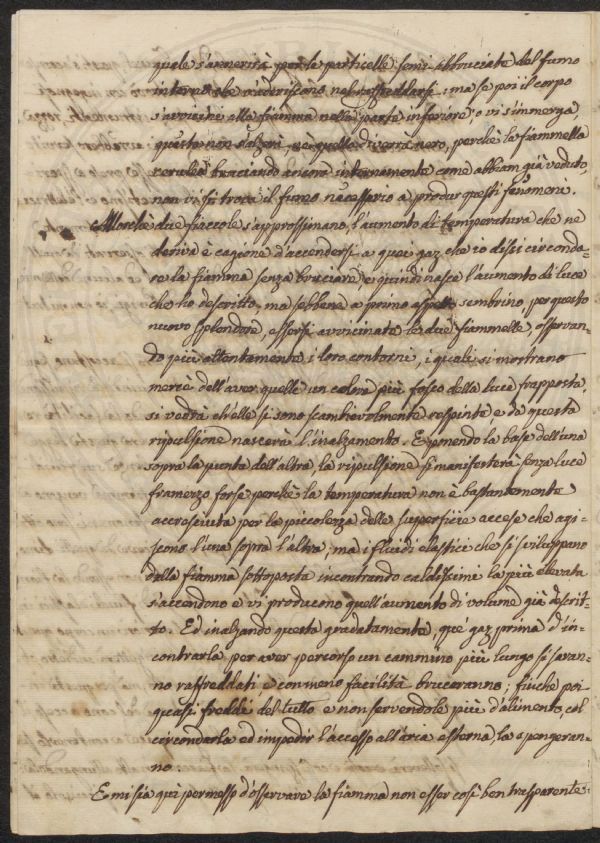 quale s'annerirà per le particelle semi abbruciate del fumo
interno che vi aderiscono nel raffreddarsi; ma se poi il corpo
s'avvicini alla fiamma nella parte inferiore, o vi s'immerga,
questo non alzerà, e quello diverrà nero, perchè la fiammella
cerulea bruciando ancora internamente come abbiam già veduto,
non vi si trova il fumo necessario a produr questi fenomeni.
Allorchè due fiaccole s'approssimano, l'aumento di temperatura che ne
deriva è cagione d'accendersi a quei gaz che io dissi circonda-
re la fiamma senza bruciare, e quindi nasce l'aumento di luce
che ho descritto, ma sebbene a primo aspetto sembrino, per questo
nuovo splendore, essersi avvicinate le due fiammelle, osservan-
do più attentamente i loro contorni, i quali si mostrano
mercè dell'aver quelle un colore più fosco della luce frapposta,
si vedrà ch'elle si sono scambievolmente respinte e da questa
ripulsione nascerà l'inalzamento. Esponendo la base dell'una
sopra la punta dell'altra, la ripulsione si manifesterà senza luce
framezzo forse perchè la temperatura non è bastantemente
accresciuta per la piccolezza delle superficie accese che agi-
scono l'una sopra l'altra, ma i fluidi elastici che si sviluppano
dalla fiamma sottoposta incontrando caldissimi la più elevata
s'accendono e vi producono quell'aumento di volume già descrit-
to. Ed inalzando questa gradatamente, que' gaz prima d'in-
contrarla per aver percorso un cammino più lungo si saran-
no raffreddati e con meno facilità bruceranno; finchè poi
quasi freddi del tutto e non servendole più d'alimento, col
circondarla ed impedir l'accesso all'aria esterna, la spengeran-
no.
E mi sia qui permesso d'osservare la fiamma non esser così ben trasparente